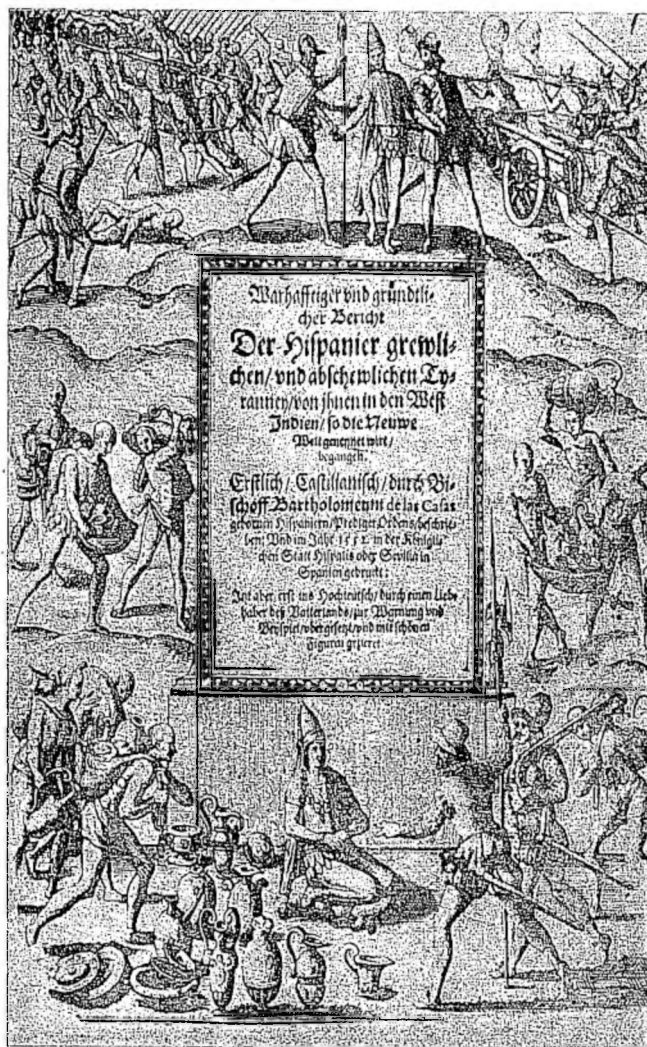 Warhafftiger vnd gründtli-
cher Bericht
Der Hispanier grewli-
chen/ vnd abschewlichen Ty-
ranney/ von jhnen in den West
Indien/ so die Neuwe
Welt genennet wirt/
begangen.
Erstlich/ Castilianisch/ durch Bi-
schoff Bartholomeum de las Casas
gebornen Hispaniern/ Prediger Ordens/ beschrie-
ben: Vnd im Jahr 1552 in der Königli-
chen Statt Hispalis oder Sevilla in
Spanien gedruckt:
Jtzt aber erst ins Hochteutsch/ durch einen Lieb-
haber deß Vatterlands/ zur Warnung vnd
Beyspiel/ vbergesetzt/ vnd mit schönen
Figuren gezieret.